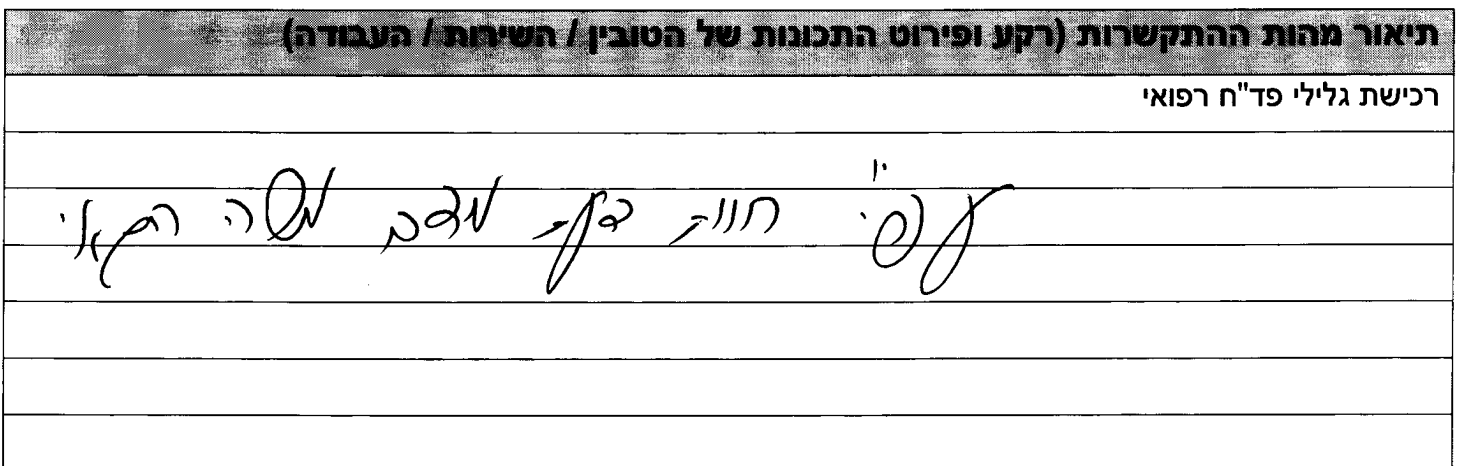 תיאור מהות ההתקשרות (רקע ופירוט התכונות של הטובין / השירות / העבודה)
רכישת גלילי פד"ח רפואי
עפ"י חוות דעת משה